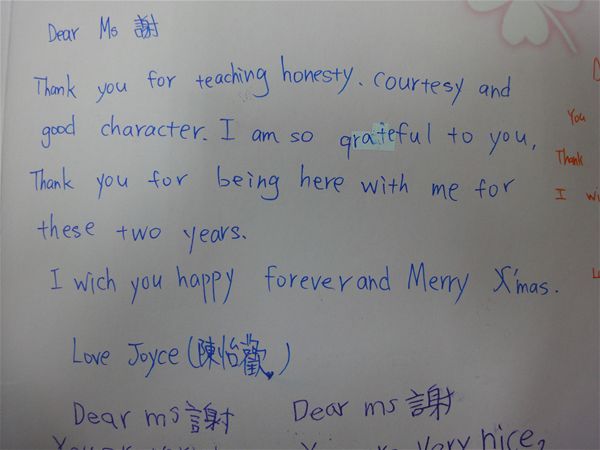 Dear Ms 謝
Thank you for teaching honesty、courtesy and
good character. I am so grateful to you,
Thank you for being here with me for
these two years.
I wich you happy forever and Merry X'mas.
Love Joyce (陳怡歡)
Dear ms 謝
Dear ms 謝
very nice,
You
Thank
I